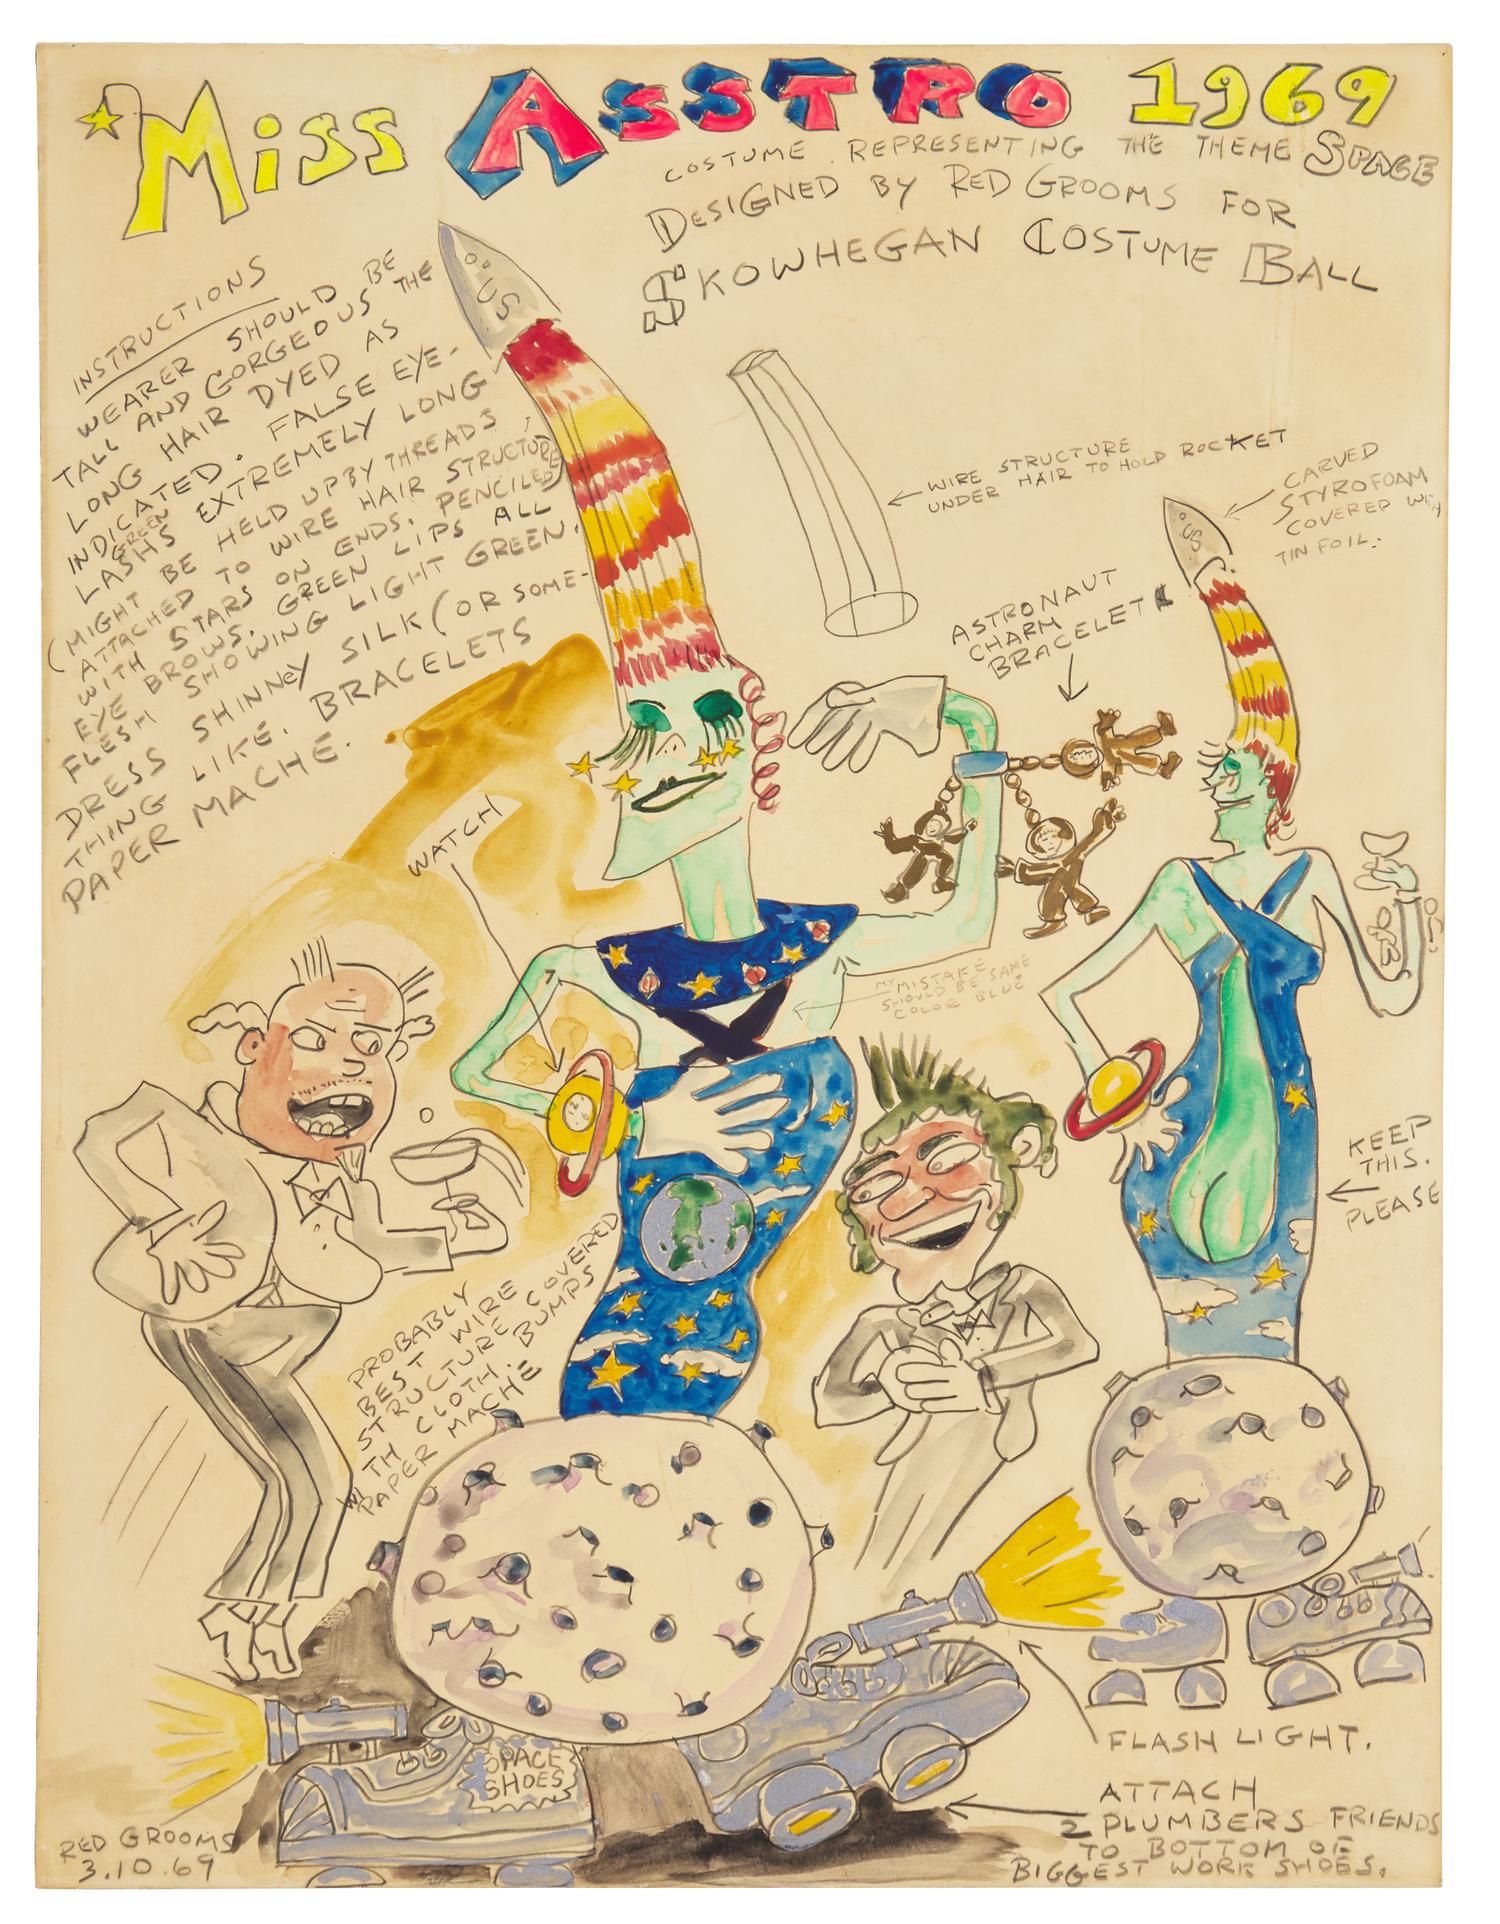 Miss ASSTRO 1969
COSTUME REPRESENTING THE THEME SPACE
DESIGNED BY RED GROOMS FOR
SKOWHEGAN COSTUME BALL
INSTRUCTIONS
WEARER SHOULD BE
TALL AND GORGEOUS THE
LONG HAIR DYED AS
INDICATED. FALSE EYE-
GREEN
LASHS EXTREMELY LONG
(MIGHT BE HELD UP BY THREADS
ATTACHED TO WIRE HAIR STRUCTURE
WITH STARS ON ENDS. PENCILED
EYE BROWS. GREEN LIPS ALL
FLESH SHOWING LIGHT GREEN.
DRESS SHINNEY SILK (OR SOME-
THING LIKE. BRACELETS
PAPER MACHE.
US
WIRE STRUCTURE
UNDER HAIR TO HOLD ROCKET
CARVED
STYROFOAM
COVERED WITH
TIN FOIL.
US
ASTRONAUT
CHARM
BRACELET
WATCH
MY MISTAKE
SHOULD BE SAME
COLOR BLUE
KEEP
THIS.
PLEASE
PROBABLY
BEST WIRE
STRUCTURE COVERED
TH CLOTH. BUMPS
W/ PAPER MACHE
FLASH LIGHT.
SPACE
SHOES
ATTACH
2 PLUMBERS FRIENDS
TO BOTTOM OF
BIGGEST WORK SHOES.
RED GROOMS
3.10.69